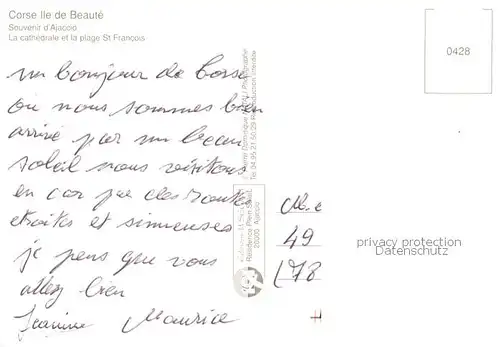 Corse Ile de Beauté
Souvenir d'Ajaccio
La cathédrale et la plage St François
0428
un bonjour de Corse
ou nous sommes bien
arrivé par un beau
soleil nous visitons
en car par des routes
etroites et sinueuses
je pens que vous
allez bien
Jeanine Maurice
20000 Ajaccio
49
178
privacy protection
Datenschutz